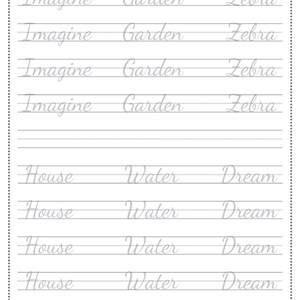 Imagine Garden Zebra
Imagine Garden Zebra
Imagine Garden Zebra
Imagine Garden Zebra
House Water Dream
House Water Dream
House Water Dream
House Water Dream